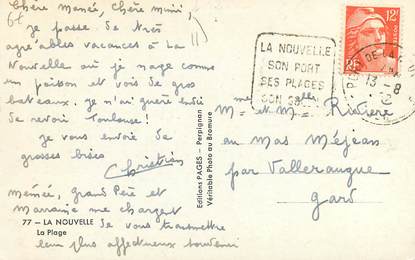 Chère Mémée, Chère Mimi,
et
je passe de très
agréables vacances à la
Nouvelle où je nage comme
un poisson et vois de gros
bateaux. Je n'ai guère envie
de revoir Toulouse!
Je vous envoie de
grosses bises
Christian
Mémée, Grand Père et
Marraine me chargent
de vous transmettre
leur plus affectueux souvenir
77 - LA NOUVELLE
La Plage
Editions PAGES - Perpignan
Véritable Photo au Bromure
LA NOUVELLE
SON PORT
SES PLAGES
SON
12F
RF
POSTES
13-8
Mme et Melle Rivière
au mas Méjean
par Valleraugue
Gard